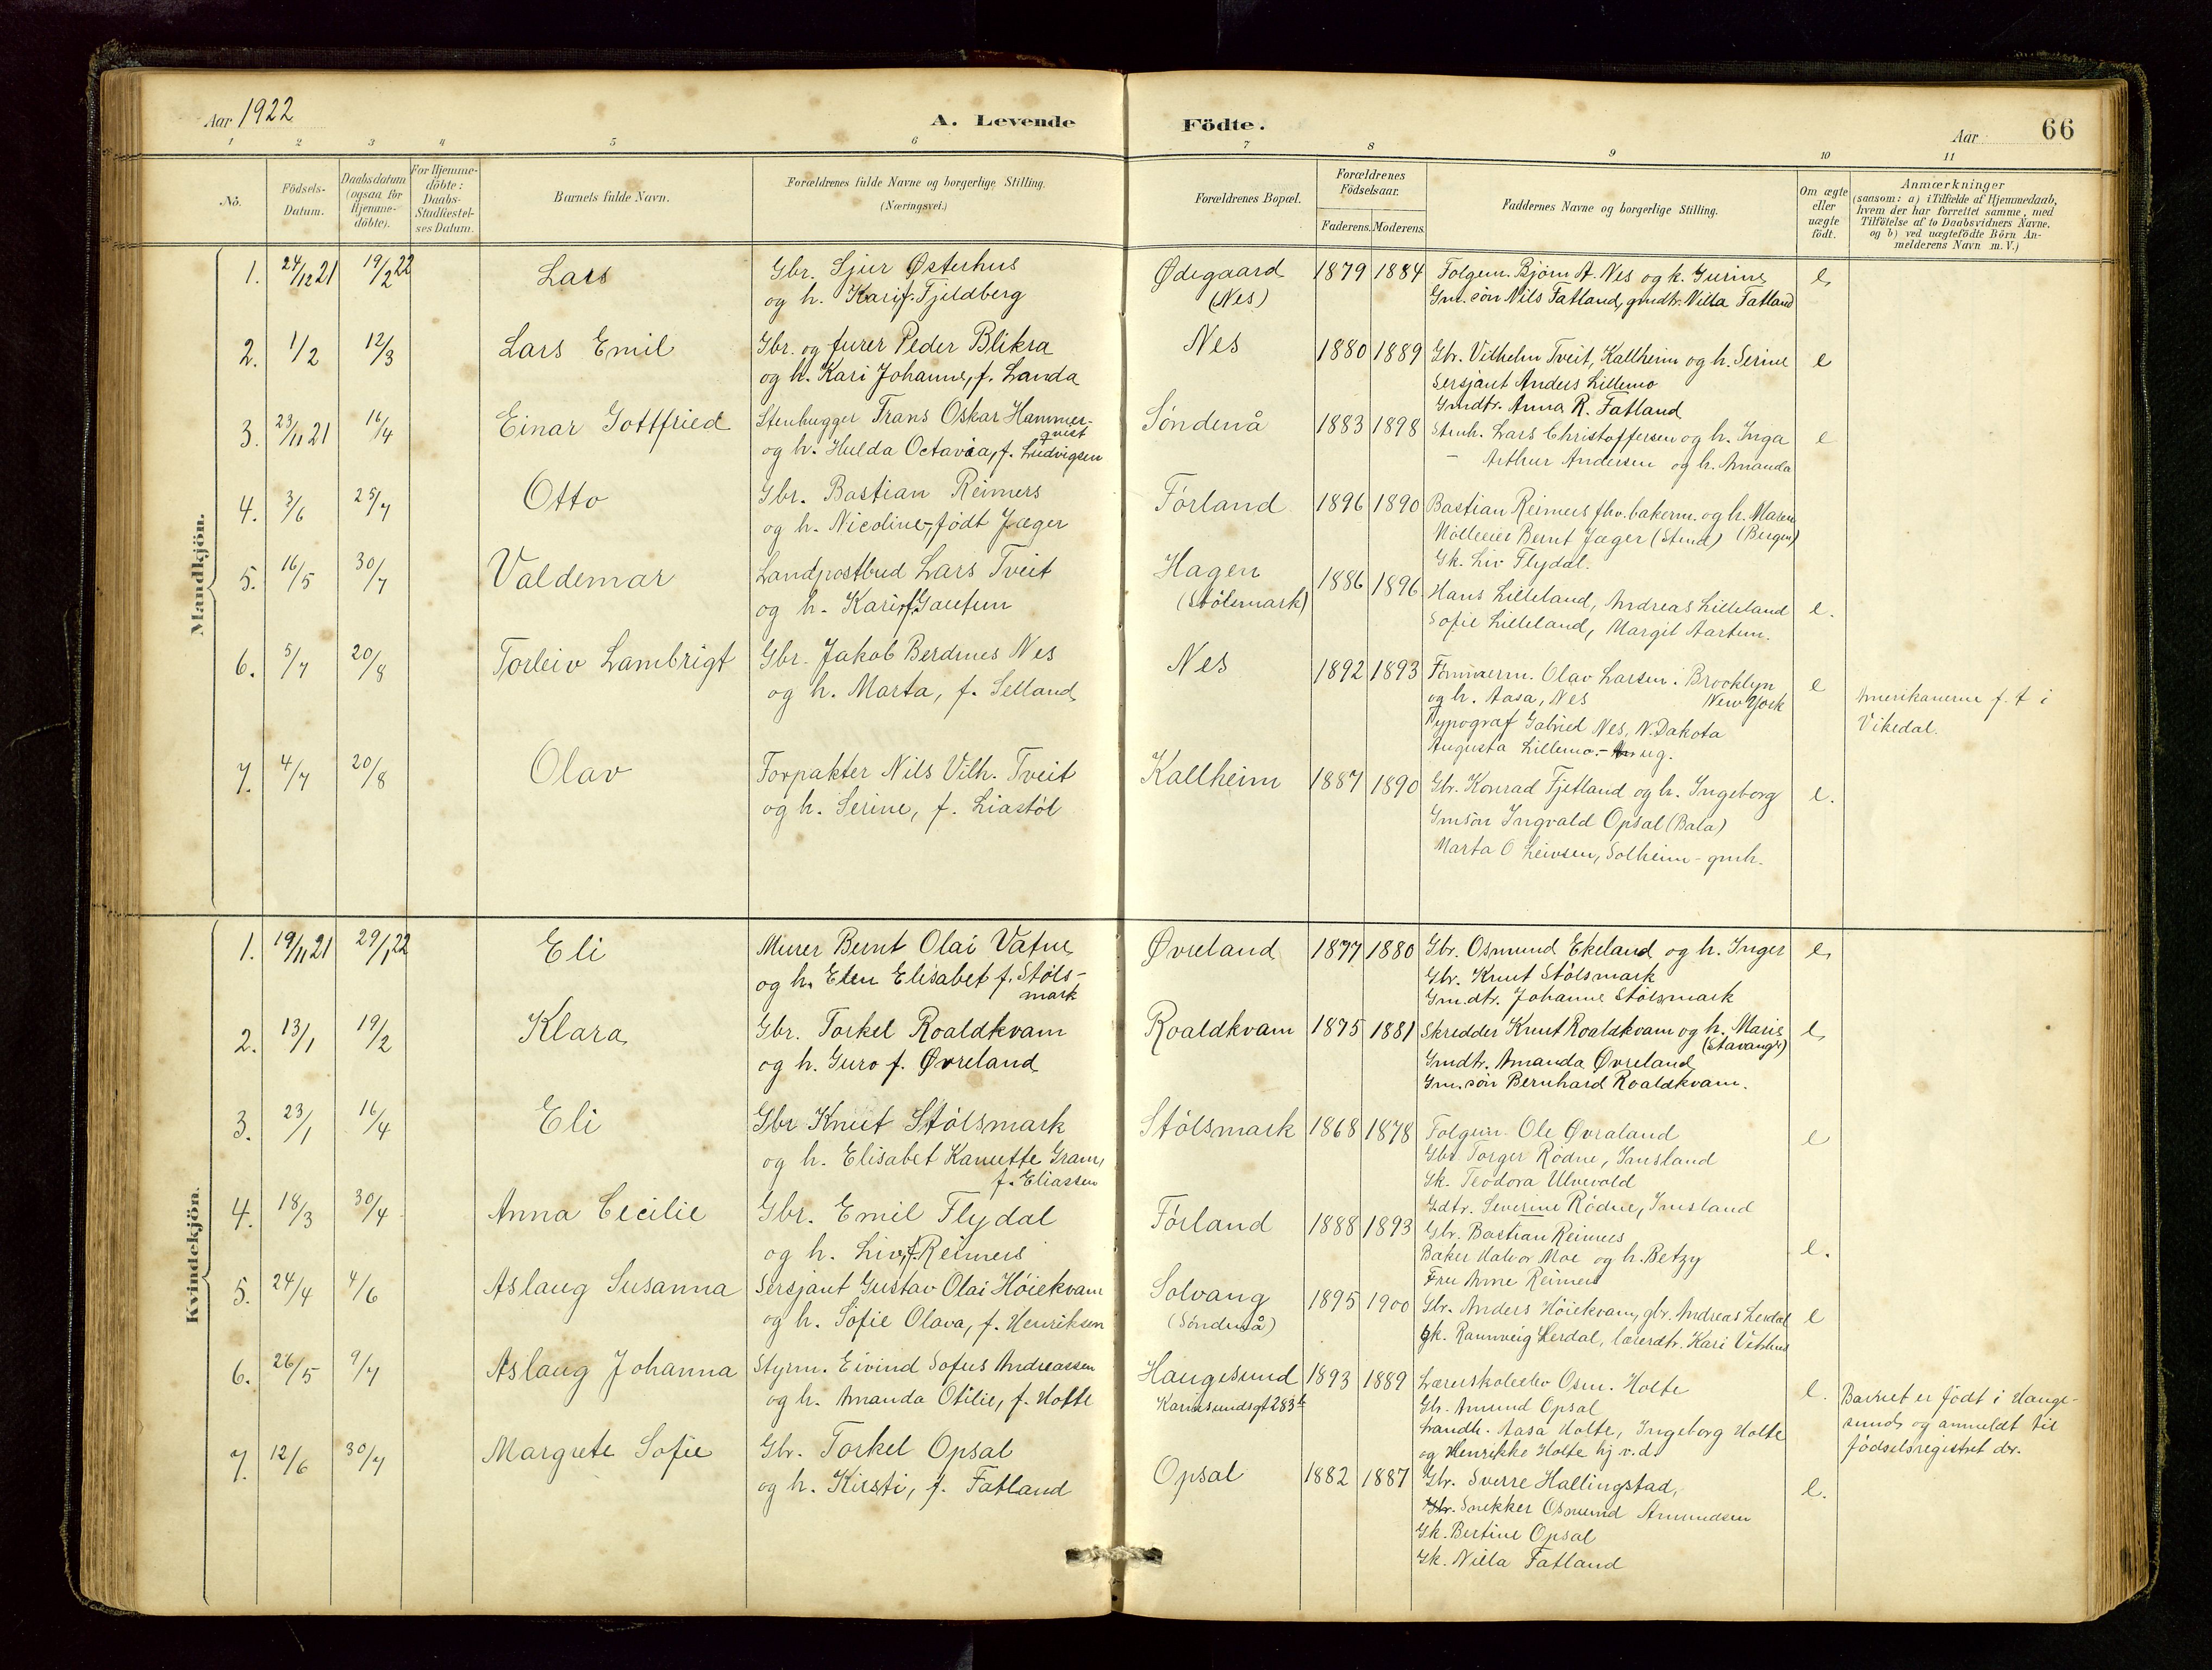 Aar 1922
A. Levende
Födte.
Aar
66
1 2 3 4 5 6 7 8 9 10 11
No.
Födsels-Datum.
Daabsdatum (ogsaa for Hjemme-döbte).
For Hjemme-döbte: Daabs-Stadfæstel-ses Datum.
Barnets fulde Navn.
Forældrenes fulde Navne og borgerlige Stilling.
(Næringsvei.)
Forældrenes Bopæl.
Forældrenes Födselsaar.
Faderens. Moderens.
Faddernes Navne og borgerlige Stilling.
Om ægte eller uægte födt.
Anmærkninger
(saasom: a) i Tilfælde af Hjemmedaab, hvem der har forrettet samme, med Tilföielse af to Daabsvidners Navne, og b) ved uægtefödte Börn An-melderens Navn m. V.)
Mandkjön.
1. 24/12 21 19/2 22 Lars
Gbr. Sjur Østerhus
og h. Kari f. Fjeldberg
Ødegaard
(Nes)
1879 1884
Folgem. Bjørn A. Nes og k. Gurine
Gm. søn Nils Fatland, gmdtr. Nilla Fatland
e
2. 1/2 12/3 Lars Emil
Gbr. og furer Peder Blikra
og h. Kari Johanne, f. Landa
Nes
1880 1889
Gbr. Vilhelm Tveit, Kallheim og h. Serine
Sersjant Anders Lillemo
Gmdtr. Anna R. Fatland
e
3. 23/11 21 16/4 Einar Gottfried
Stenhugger Frans Oskar Hammer-
qvist
og h. Hulda Octavia, f. Ludvigsen
Søndenå
1883 1898
Stenh. Lars Christoffersen og h. Inga
- Arthur Andersen og h. Amanda
e
4. 3/6 25/7 Otto
Gbr. Bastian Reimers
og h. Nicoline, født Jæger
Førland
1896 1890
Bastian Reimers fhv. bakerm. og h. Maren
Mølleeier Bernt Jæger (Stend) (Bergen)
Gk. Liv Flydal.
5. 16/5 30/7 Valdemar
Landpostbud Lars Tveit
og h. Kari, f. Gautun
Hagen
(Stølsmark)
1886 1896
Hans Lilleland, Andreas Lilleland
Sofie Lilleland, Margit Aartun.
e.
6. 5/7 20/8 Torleiv Lambrigt
Gbr. Jakob Berdines Nes
og h. Marta, f. Selland
Nes
1892 1893
Tømmerm. Olav Larsen. Brooklyn
og h. Aasa, Nes New York
Typograf Gabriel Nes, N. Dakota
Augusta Lillemo - ug.
e
Amerikanerne f. t i
Vikedal.
7. 4/7 20/8 Olav
Forpakter Nils Vilh. Tveit
og h. Serine, f. Liastøl
Kallheim
1887 1890
Gbr. Konrad Fjetland og h. Ingeborg
Gmsøn Ingvald Opsal (Bala)
Marta O Leivsen, Solheim - gmh.
e.
Kvindekjön.
1. 19/11 21 29/1 22 Eli
Murer Bernt Olai Vatne
og h. Elen Elisabet f. Støls-
mark
Øvreland
1877 1880
Gbr. Osmund Ekeland og h. Inger
Gbr. Knut Stølsmark
Gm.dtr. Johanne Stølsmark
e
2. 13/1 19/2 Klara
Gbr. Torkel Roaldkvam
og h. Guro f. Øvreland
Roaldkvam
1875 1881
Skredder Knut Roaldkvam og h. Marie
(Stavanger)
Gmdtr. Amanda Øvreland
Gm. søn Bernhard Roaldkvam.
e
3. 23/1 16/4 Eli
Gbr Knut Stølsmark
og h. Elisabet Kanutte Gram,
f. Eliassen
Stølsmark
1868 1878
Folgem. Ole Øvraland
Gbr Torger Rødne, Imsland
Gk. Teodora Ulvevold
Gdtr. Severine Rødne, Imsland
e
4. 18/3 30/4 Anna Cecilie
Gbr. Emil Flydal
og h. Liv, f. Reimers
Førland
1888 1893
Gbr. Bastian Reimers
Baker Halvor Moe og h. Betzy
Fru Anne Reimers
e.
5. 24/4 4/6 Aslaug Susanna
Sersjant Gustav Olai Høiekvam
og h. Sofie Olava, f. Henriksen
Solvang
(Søndenå)
1895 1900
Gbr. Anders Høiekvam, gbr. Andreas Lerdal
gk. Rannveig Herdal, lærerdtr. Kari Vethus
e
6. 26/5 9/7 Aslaug Johanna
Styrm. Eivind Sofus Andreassen
og h. Amanda Otilie, f. Holte
Haugesund
Karmsundsgt 283b
1893 1889
Lærerskoleelev Osm. Holte
Gbr. Amund Opsal
Landh. Aasa Holte, Ingeborg Holte
og Henrikke Holte hj v. d.
e.
Barnet er født i Hauge-
sund og anmeldt til
fødselsregistret der.
7. 12/6 30/7 Margrete Sofie
Gbr. Torkel Opsal
og h. Kirsti, f. Fatland
Opsal
1882 1887
Gbr. Sverre Hallingstad,
Gbr. Snekker Osmund Amundsen
Gk. Bertine Opsal
Gk. Nilla Fatland
e.